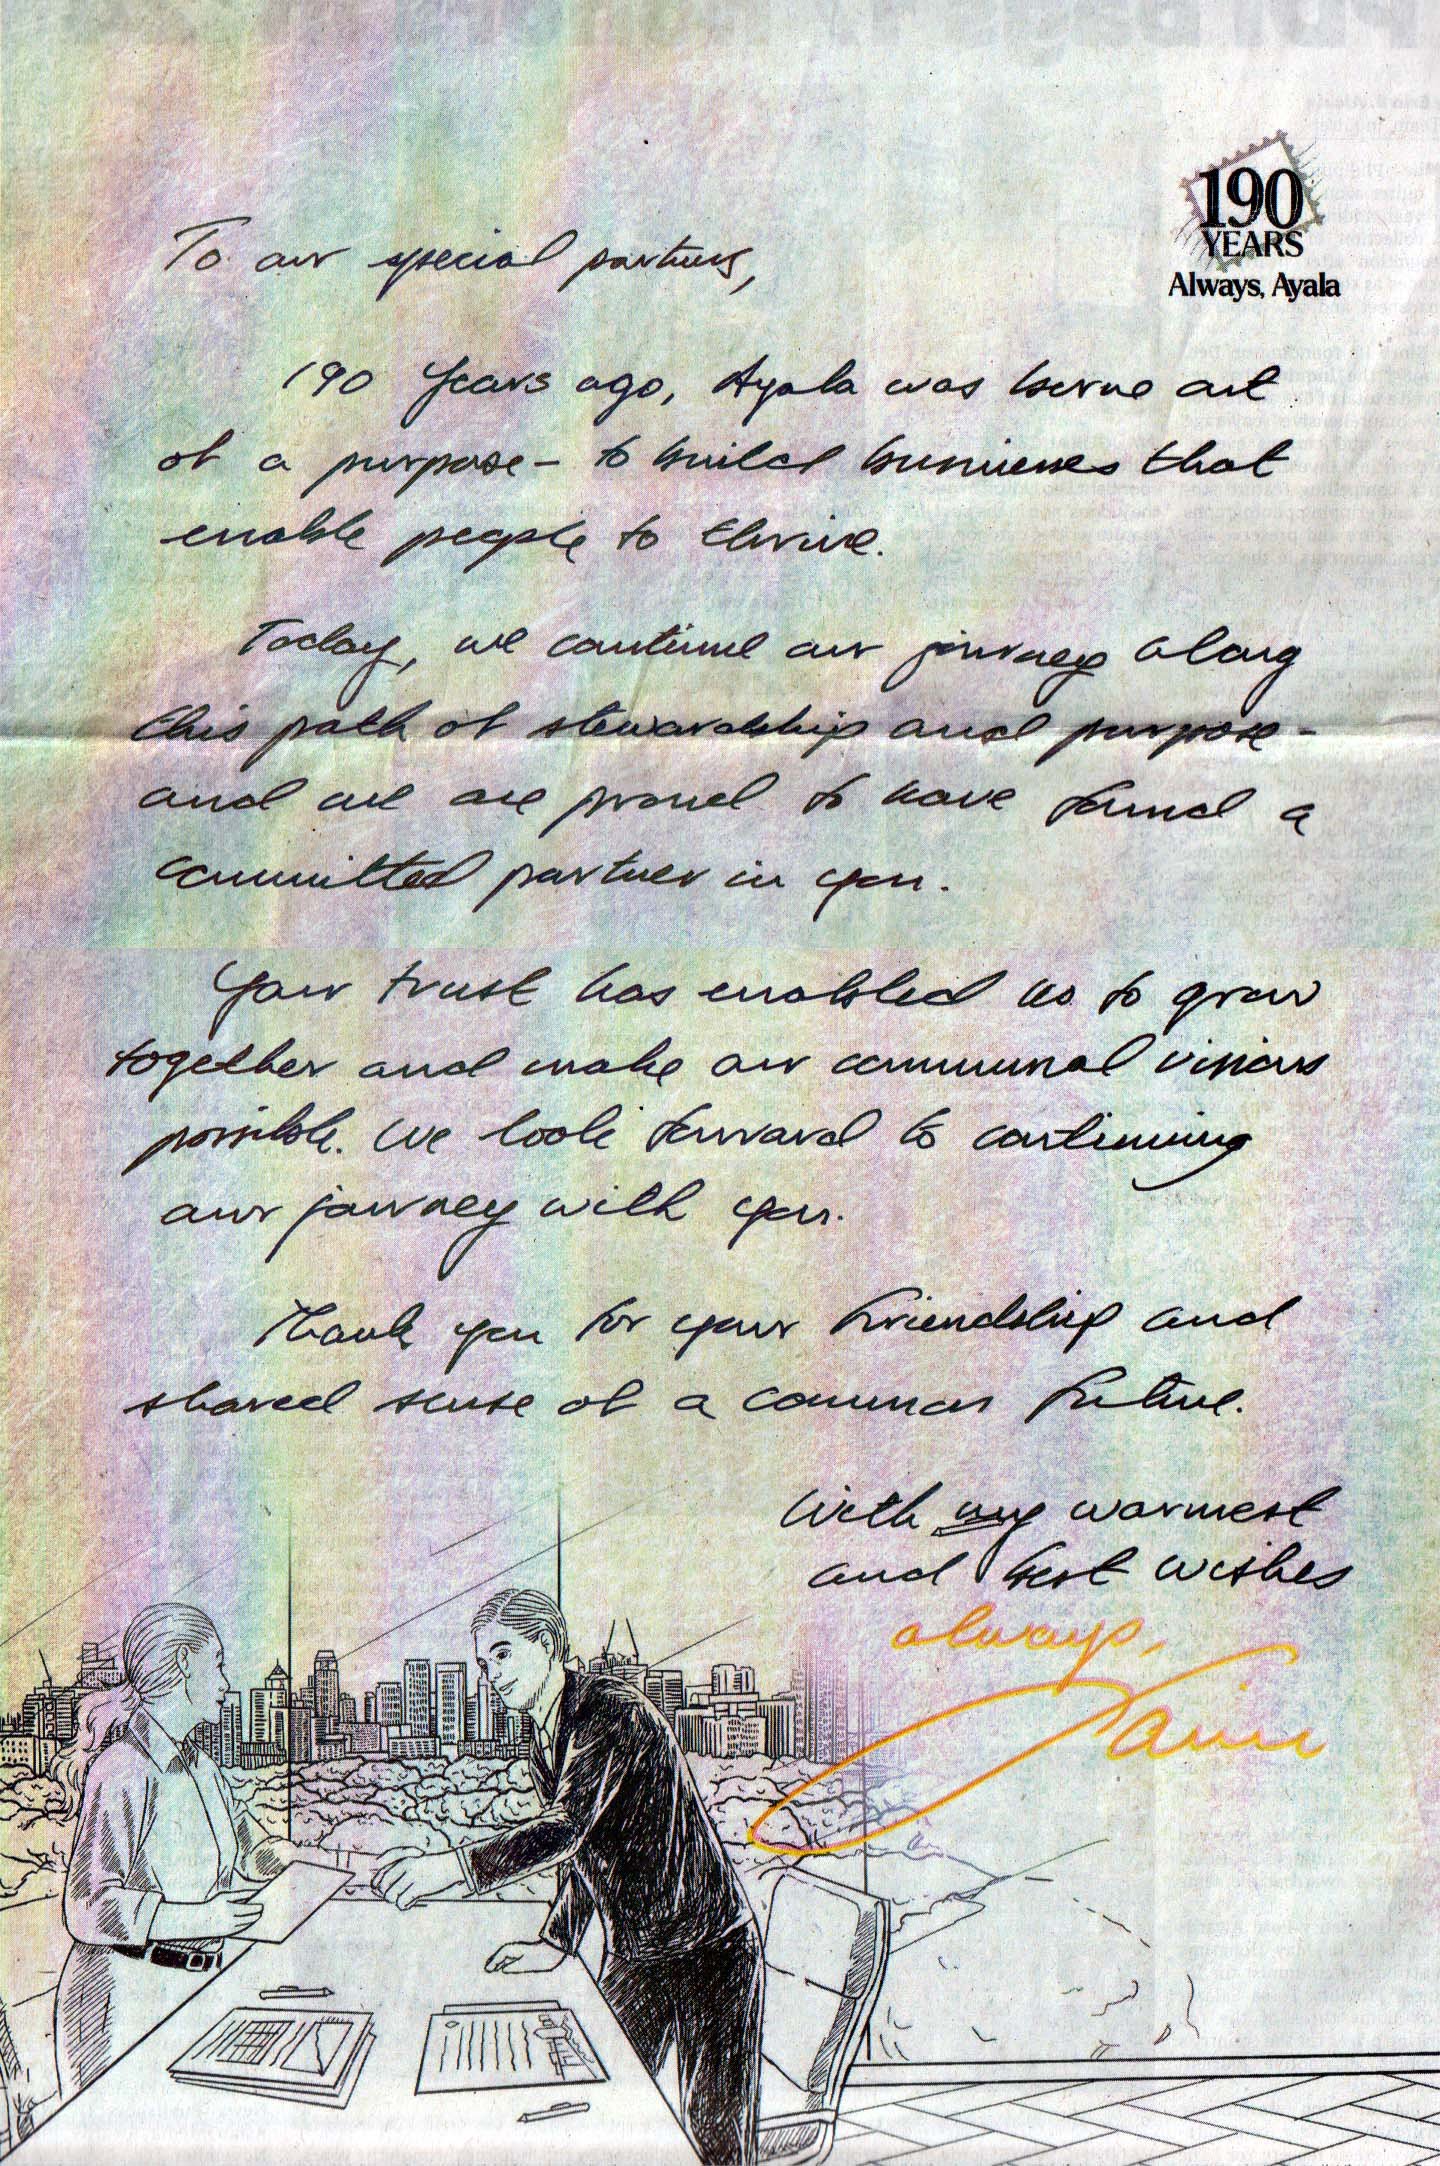 190
YEARS
Always, Ayala
To our special partners,
190 Years ago, Ayala was borne out
of a purpose - to build businesses that
enable people to thrive.
Today, we continue our journey along
this path of stewardship and purpose -
and we are proud to have found a
committed partner in you.
Your trust has enabled us to grow
together and make our communal visions
possible. We look forward to continuing
our journey with you.
Thank you for your friendship and
shared sense of a common future.
With my warmest
and best wishes
always,